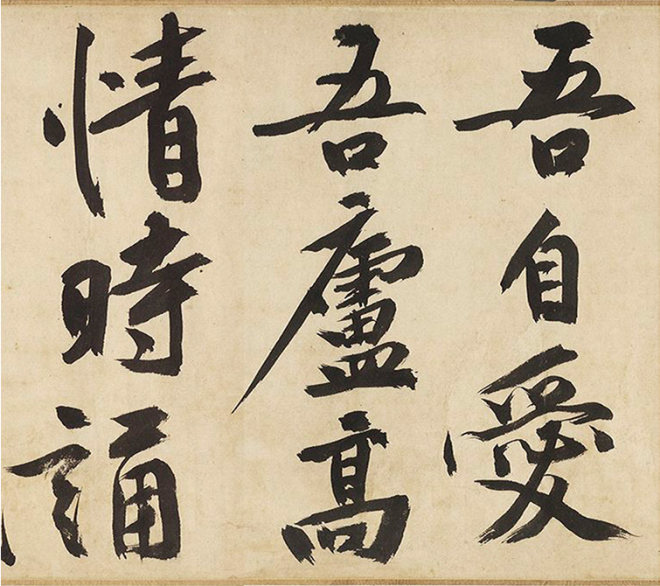 吾自愛
吾廬高
情時誦